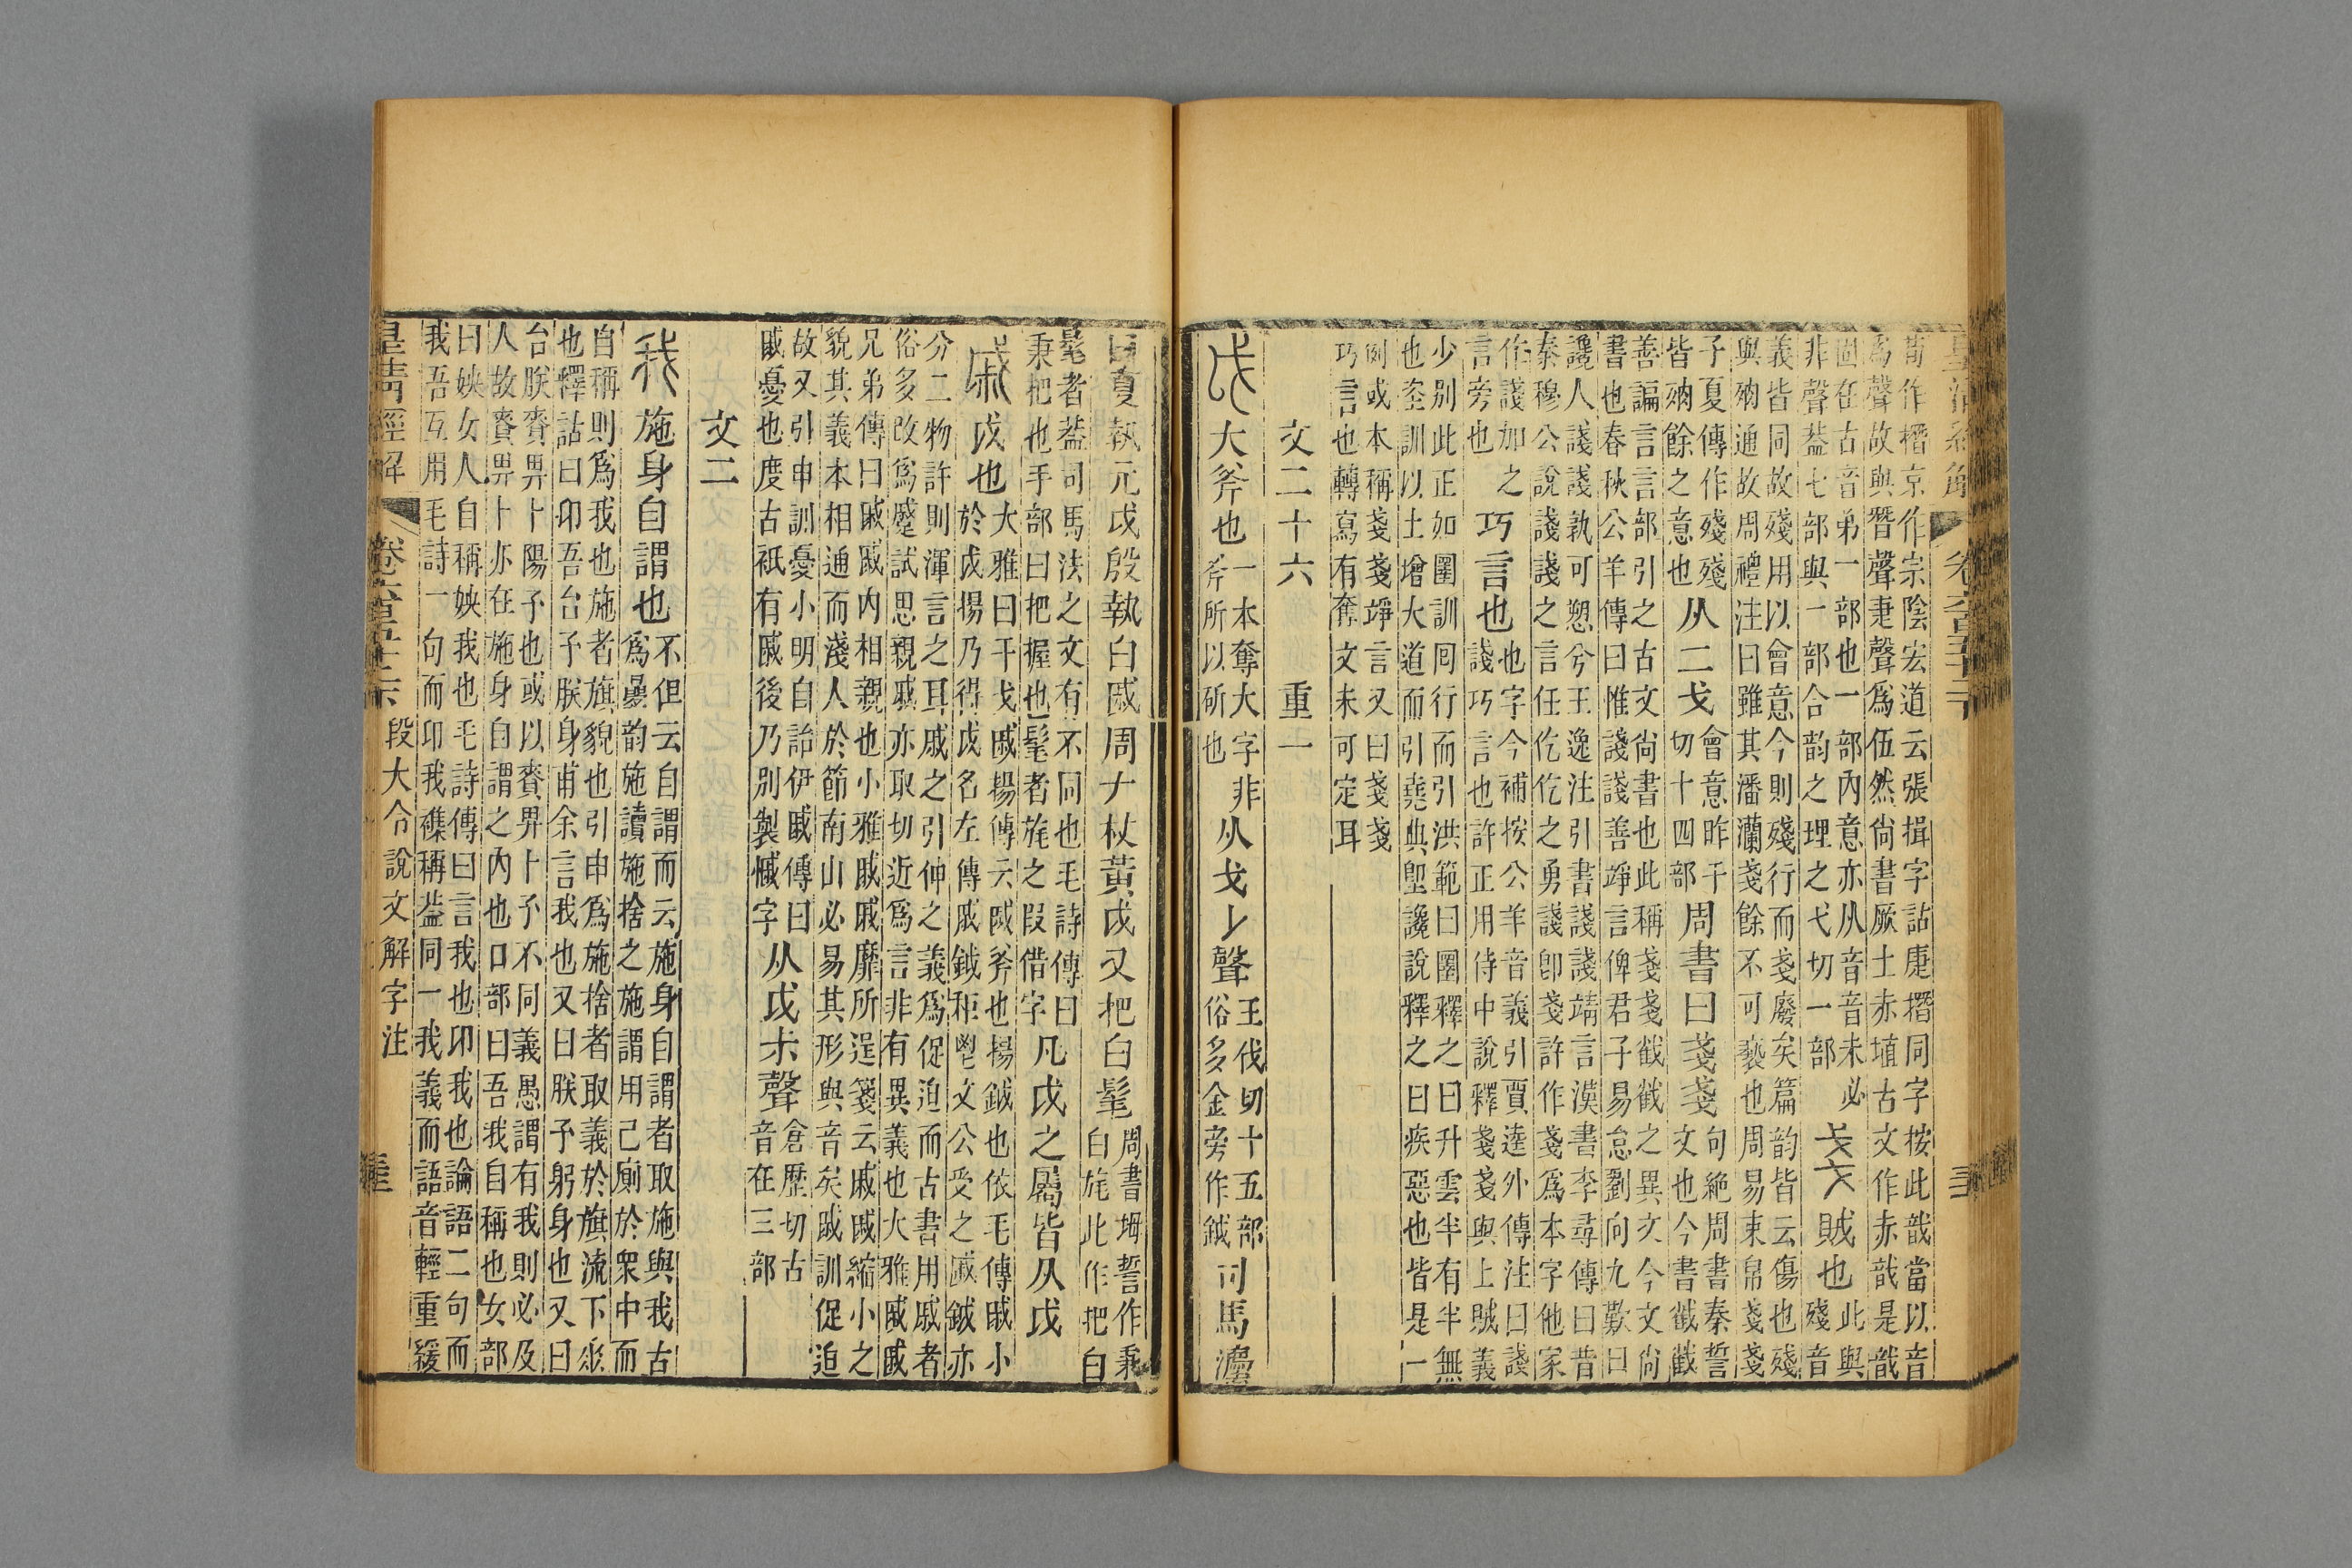 皇清經解 卷六百五十二
作㮇京作宗陰宏道云張揖字詁㾕㩉同字按此戠當以音
爲聲故與暬聲疌聲爲伍然尚書厥土赤埴古文作赤戠是戠
固在古音弟一部也一部內意亦从音音未必
非聲葢七部與一部合韵之理之弋切一部
戔賊也
此與
殘音
義皆同故殘用以會意今則殘行而戔廢矣篇韵皆云傷也殘
與䏼通故周禮注曰雖其潘瀾戔餘不可褻也周易束帛戔戔
子夏傳作殘殘
皆䏼餘之意也
从二戈
會意昨干
切十四部
周書曰戔戔
句絕周書秦誓
文也今書截截
善諞言言部引之古文尚書也此稱戔戔截截之異文今文尚
書也春秋公羊傳曰惟諓諓善竫言俾君子易怠劉向九歎曰
讒人諓諓孰可愬兮王逸注引書諓諓靖言漢書李尋傳曰昔
秦穆公說諓諓之言任仡仡之勇諓卽戔許作戔爲本字他家
作諓加之
言旁也
巧言也
也字今補按公羊音義引賈逵外傳注曰諓
諓巧言也許正用侍中說釋戔戔與上賊義
少別此正如圛訓囘行而引洪範曰圛釋之曰升雲半有半無
也坴訓以土增大道而引堯典聖讒說釋之曰疾惡也皆是一
例或本稱戔戔竫言又曰戔戔
巧言也轉寫有奪文未可定耳
文二十六 重一
戉大斧也
一本奪大字非
斧所以斫也
从戈𠄌聲
王伐切十五部
俗多金旁作鉞
司馬灋
曰夏執元戉殷執白戚周𠂇杖黃戉又把白髦
周書坶誓作秉
白旄此作把白
髦者葢司馬法之文有不同也毛詩傳曰
秉把也手部曰把握也髦者旄之叚借字
凡戉之屬皆从戉
戚戉也
大雅曰干戈戚揚傳云戚斧也揚鉞也依毛傳戚小
於戉揚乃得戉名左傳戚鉞秬鬯文公受之戚鉞亦
分二物許則渾言之耳戚之引伸之義爲促迫而古書用戚者
俗多改爲蹙試思親戚亦取切近爲言非有異義也大雅戚戚
兄弟傳曰戚戚內相親也小雅戚戚靡所逞箋云戚戚縮小之
貌其義本相通而淺人於節南山必易其形與音矣戚訓促迫
故又引申訓憂小明自詒伊戚傳曰
戚憂也度古衹有戚後乃別製慽字
从戉尗聲
倉歷切古
音在三部
文二
我施身自謂也
不但云自謂而云施身自謂者取施與我古
爲曡韵施讀施捨之施謂用己廁於衆中而
自稱則爲我也施者旗貌也引申爲施捨者取義於旗流下垂
也釋詁曰卬吾台予朕身甫余言我也又曰朕予躬身也又曰
台朕賚畀卜陽予也或以賚畀卜予不同義愚謂有我則必及
人故賚畀卜亦在施身自謂之內也口部曰吾我自稱也女部
曰姎女人自稱姎我也毛詩傳曰言我也卬我也論語二句而
我吾互用毛詩一句而卬我襍稱葢同一我義而語音輕重緩
皇淸經解 段大令說文解字注